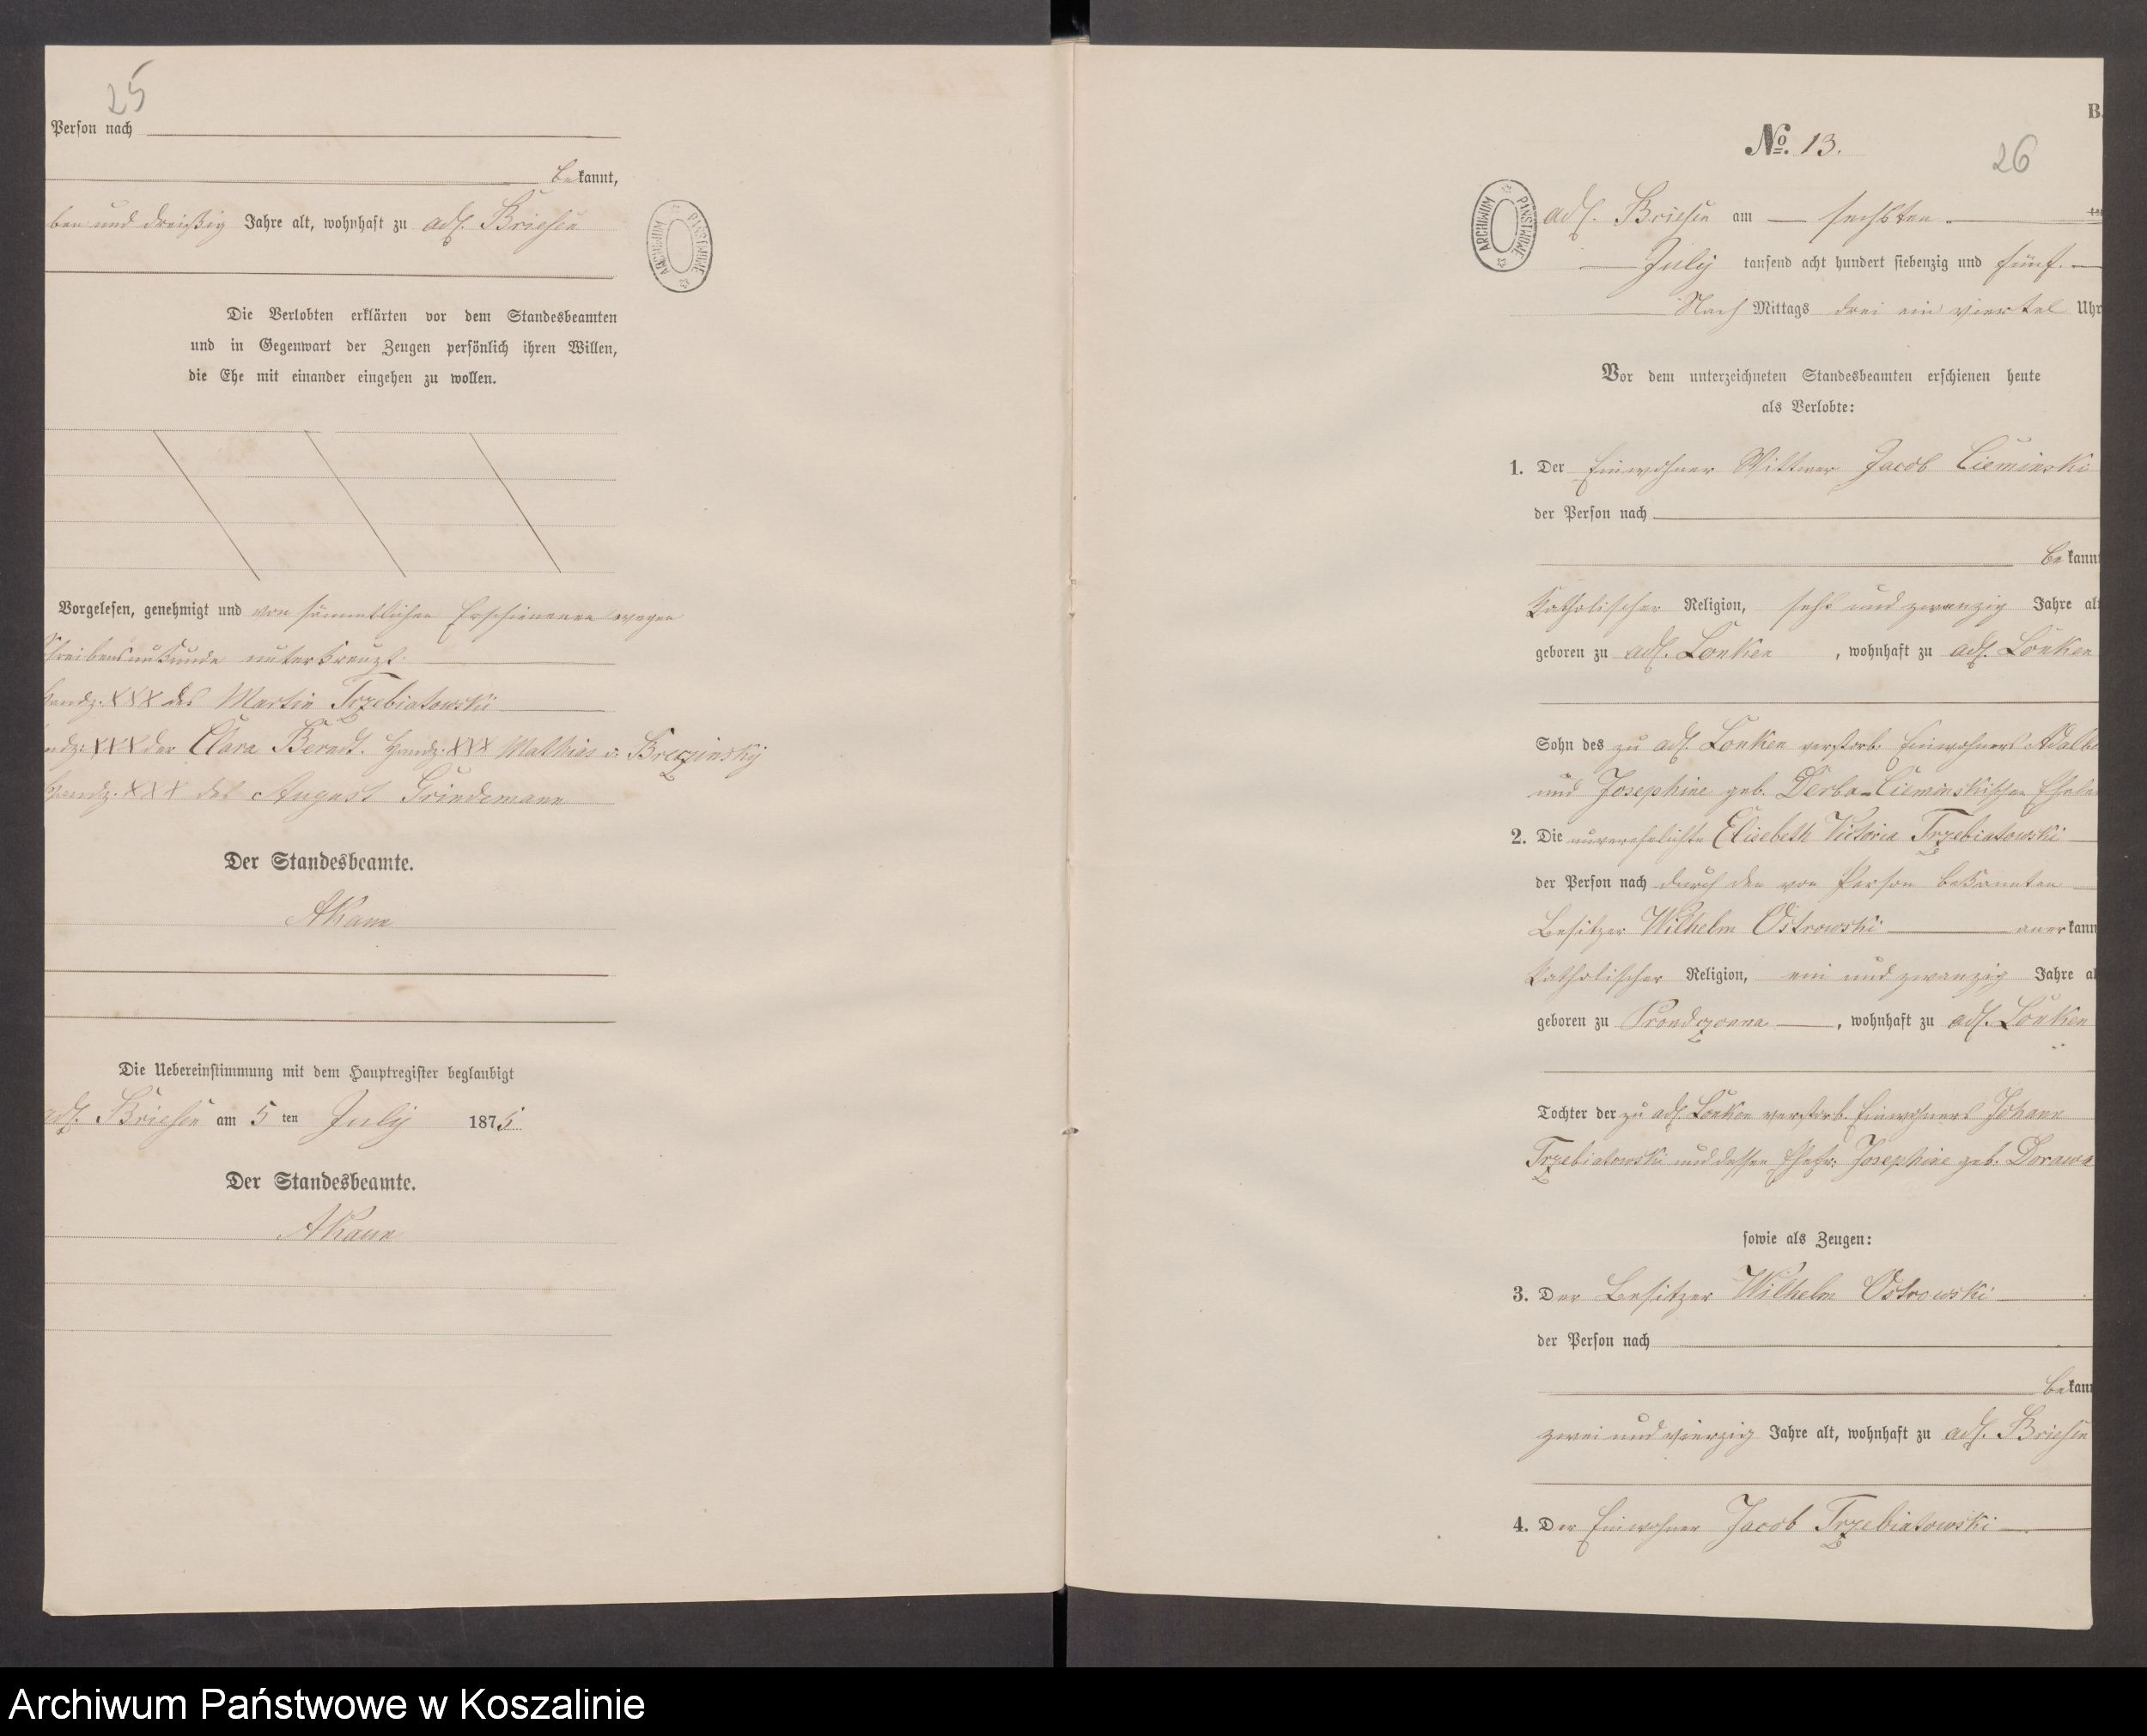 25
Person nach
bekannt,
ben und dreißig Jahre alt, wohnhaft zu adl. Briesen
Die Verlobten erklärten vor dem Standesbeamten
und in Gegenwart der Zeugen persönlich ihren Willen,
die Ehe mit einander eingehen zu wollen.
Vorgelesen, genehmigt und von sämmtlichen Erschienenen wegen
Schreibensunkunde unterkreuzt.
Handz. XXX des Martin Trzebiatowski
ndz. XXX der Clara Berndt. Handz. XXX Mathias v. Brezinsky
Handz. XXX des August Griedemann
Der Standesbeamte.
Die Uebereinstimmung mit dem Hauptregister beglaubigt
adl. Briesen am 5 ten July 1875.
Der Standesbeamte.
B.
No. 13.
26
ARCHIWUM PAŃSTWOWE
ARCHIWUM PAŃSTWOWE
adl. Briesen am sechsten ten
July tausend acht hundert siebenzig und fünf.
Nach Mittags drei ein viertel Uhr
Vor dem unterzeichneten Standesbeamten erschienen heute
als Verlobte:
1. Der Einwohner Wittwer Jacob Cieminski
der Person nach
bekannt
katholischer Religion, sechs und zwanzig Jahre alt
geboren zu adl. Lonken, wohnhaft zu adl. Lonken
Sohn des zu adl. Lonken verstorb. Einwohners Adalbe
und Josephine geb. Derba-Cieminskischen Ehele
2. Die unverehelichte Elisebeth Victoria Trzebiatowski
der Person nach durch den von Person bekannten
Besitzer Wilhelm Ostrowski anerkann
katholischer Religion, ein und zwanzig Jahre al
geboren zu Prondzonna, wohnhaft zu adl. Lonken
Tochter der zu adl. Lonken verstorb. Einwohners Johann
Trzebiatowski und dessen Ehefr: Josephine geb. Dorawa
sowie als Zeugen:
3. Der Besitzer Wilhelm Ostrowski
der Person nach
bekann
zwei und vierzig Jahre alt, wohnhaft zu adl. Briesen
4. Der Einwohner Jacob Trzebiatowski
Archiwum Państwowe w Koszalinie